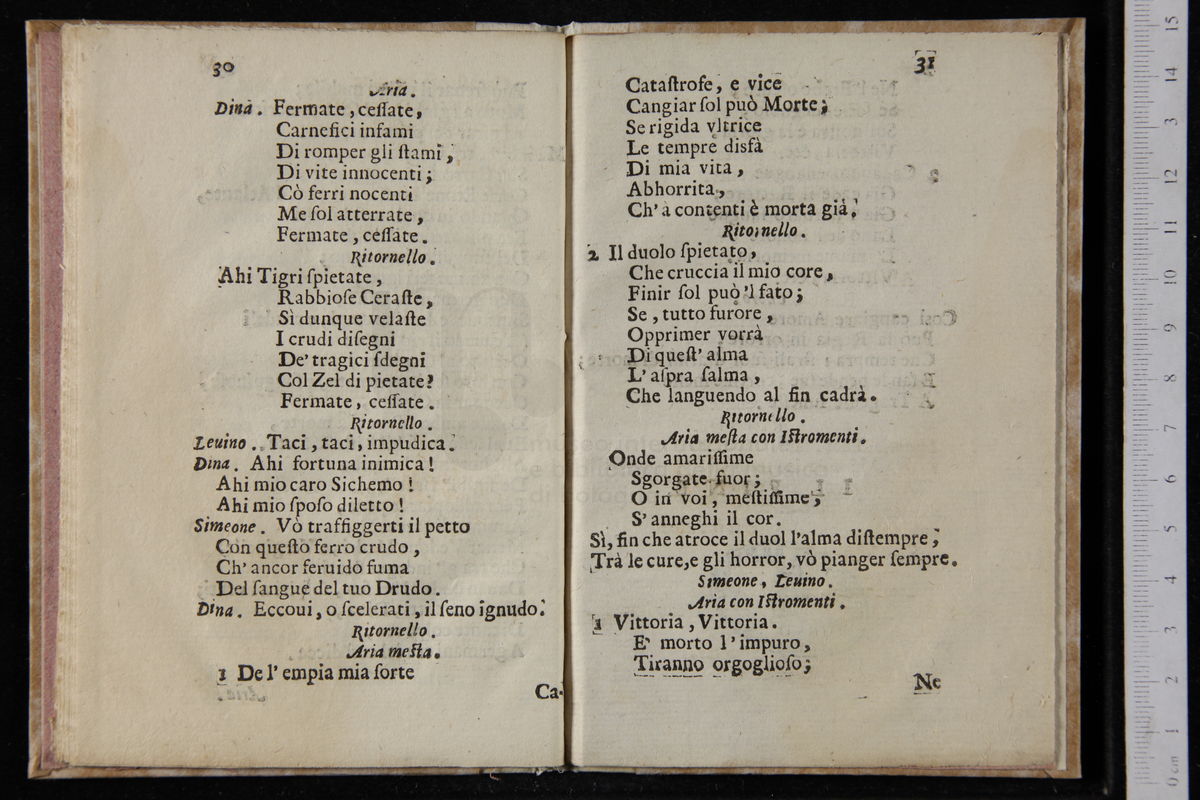 30
Aria.
Dina. Fermate, ceſſate,
Carnefici infami
Di romper gli ſtami,
Di vite innocenti;
Cò ferri nocenti
Me ſol atterrate,
Fermate, ceſſate.
Ritornello.
Ahi Tigri ſpietate,
Rabbioſe Ceraſte,
Sì dunque velaſte
I crudi diſegni
De' tragici ſdegni
Col Zel di pietate?
Fermate, ceſſate.
Ritornello.
Leuino. Taci, taci, impudica.
Dina. Ahi fortuna inimica!
Ahi mio caro Sichemo!
Ahi mio ſpoſo diletto!
Simeone. Vò traffiggerti il petto
Con queſto ferro crudo,
Ch' ancor feruido fuma
Del ſangue del tuo Drudo.
Dina. Eccoui, o ſcelerati, il ſeno ignudo.
Ritornello.
Aria meſta.
1 De l' empia mia ſorte
Ca-
31
Cataſtrofe, e vice
Cangiar ſol può Morte;
Se rigida vltrice
Le tempre disfà
Di mia vita,
Abhorrita,
Ch' à contenti è morta già.
Ritornello.
2 Il duolo ſpietato,
Che cruccia il mio core,
Finir ſol può 'l fato;
Se, tutto furore,
Opprimer vorrà
Di queſt' alma
L' aſpra ſalma,
Che languendo al fin cadrà.
Ritornello.
Aria meſta con Iſtromenti.
Onde amariſſime
Sgorgate fuor;
O in voi, meſtiſſime,
S' anneghi il cor.
Sì, fin che atroce il duol l'alma diſtempre,
Trà le cure, e gli horror, vò pianger ſempre.
Simeone, Leuino.
Aria con Iſtromenti.
1 Vittoria, Vittoria.
E' morto l' impuro,
Tiranno orgoglioſo;
Ne
0 cm 1 2 3 4 5 6 7 8 9 10 11 12 13 14 15